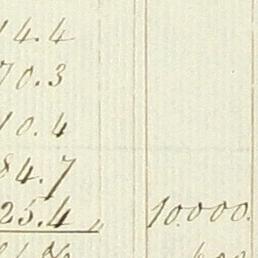 14.4
70.3
10.4
84.7
25.4 „ 10.000.